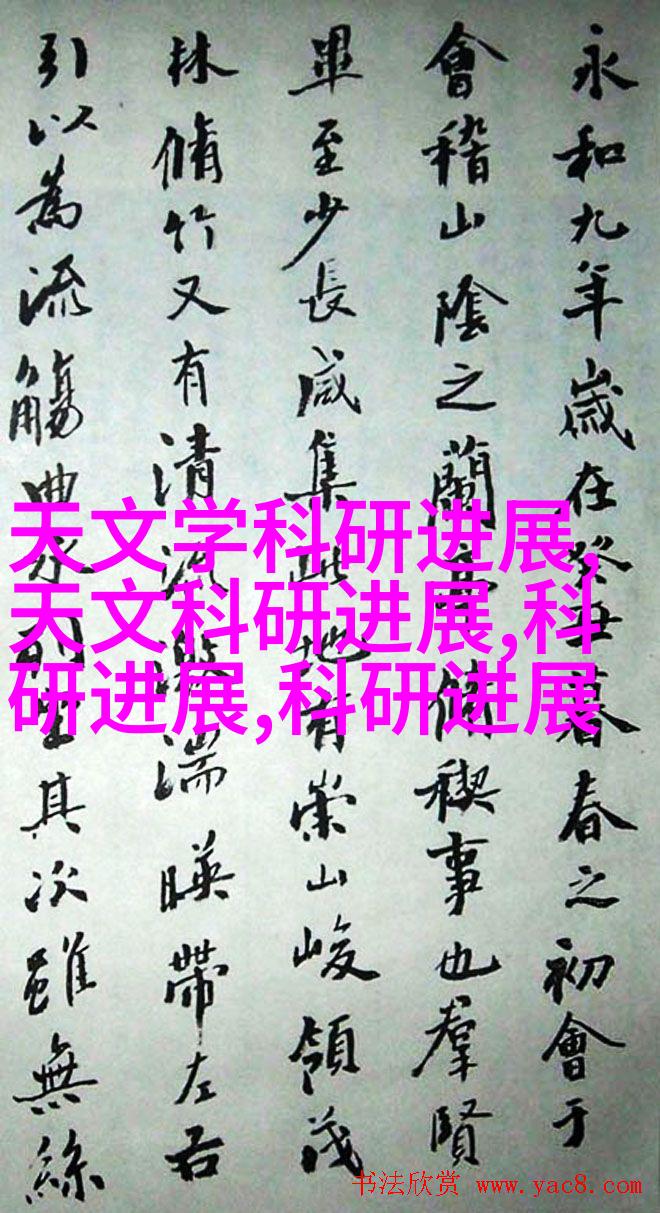 永和九年歲在癸丑暮春之初會于
會稽山陰之蘭亭脩稧事也羣賢
畢至少長咸集此地有崇山峻領茂
林脩竹又有清流激湍暎帶左右
引以為流觴曲水列坐其次雖無絲
天文学科研进展,
天文科研进展,科
研进展,科研进展
书法欣赏 www.yac8.com